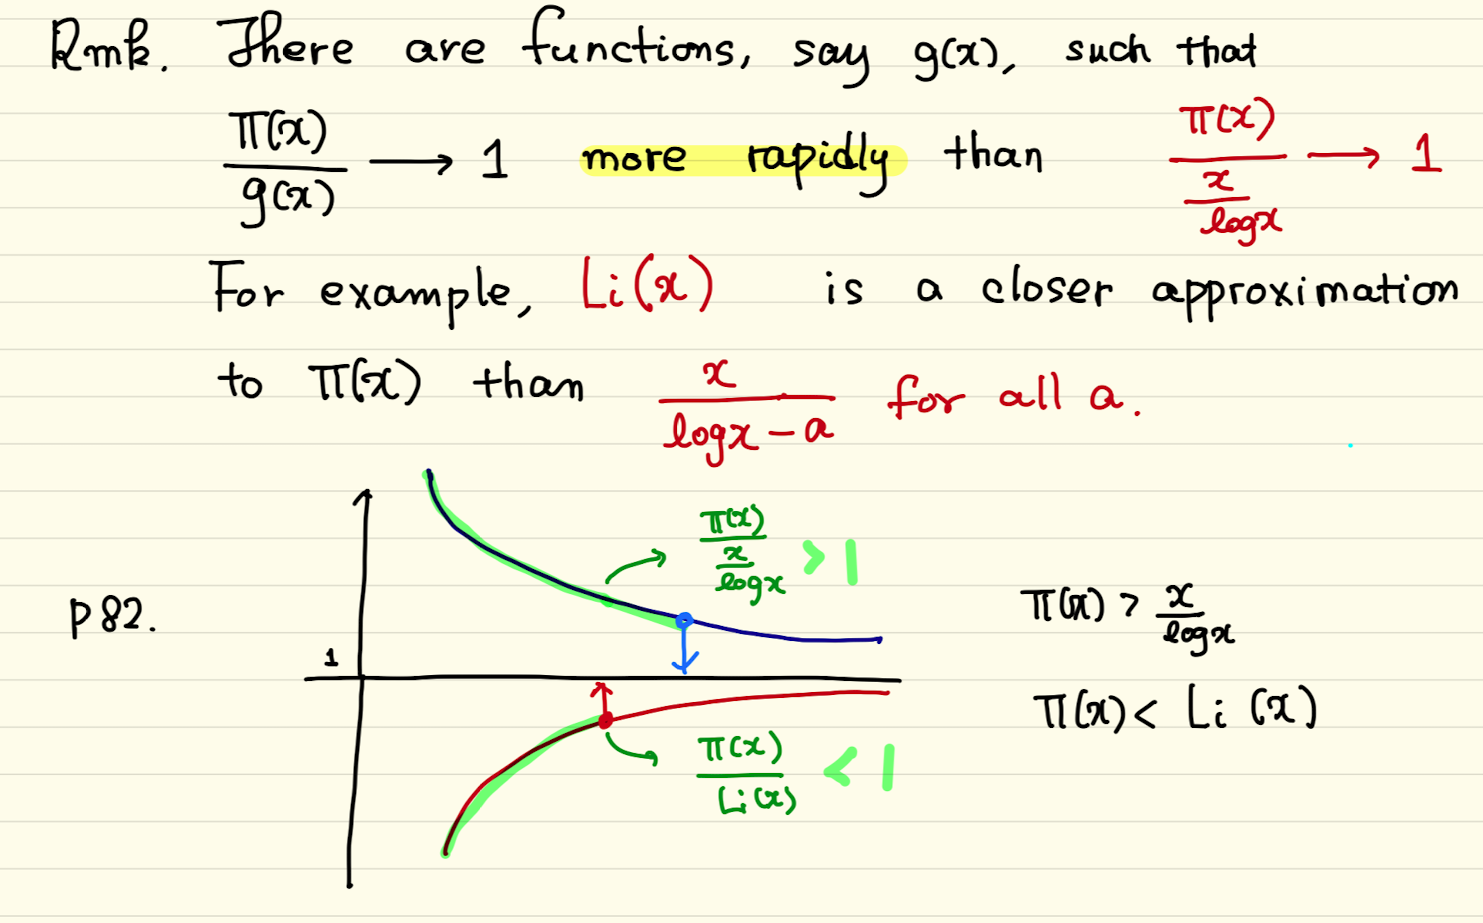 Rmk. There are functions, say g(x), such that
π(x)/g(x) → 1 more rapidly than π(x)/(x/logx) → 1
For example, Li(x) is a closer approximation
to π(x) than x/(logx-a) for all a.
π(x)/(x/logx) > 1
p82.
π(x) > x/logx
1
π(x) < Li(x)
π(x)/Li(x) < 1